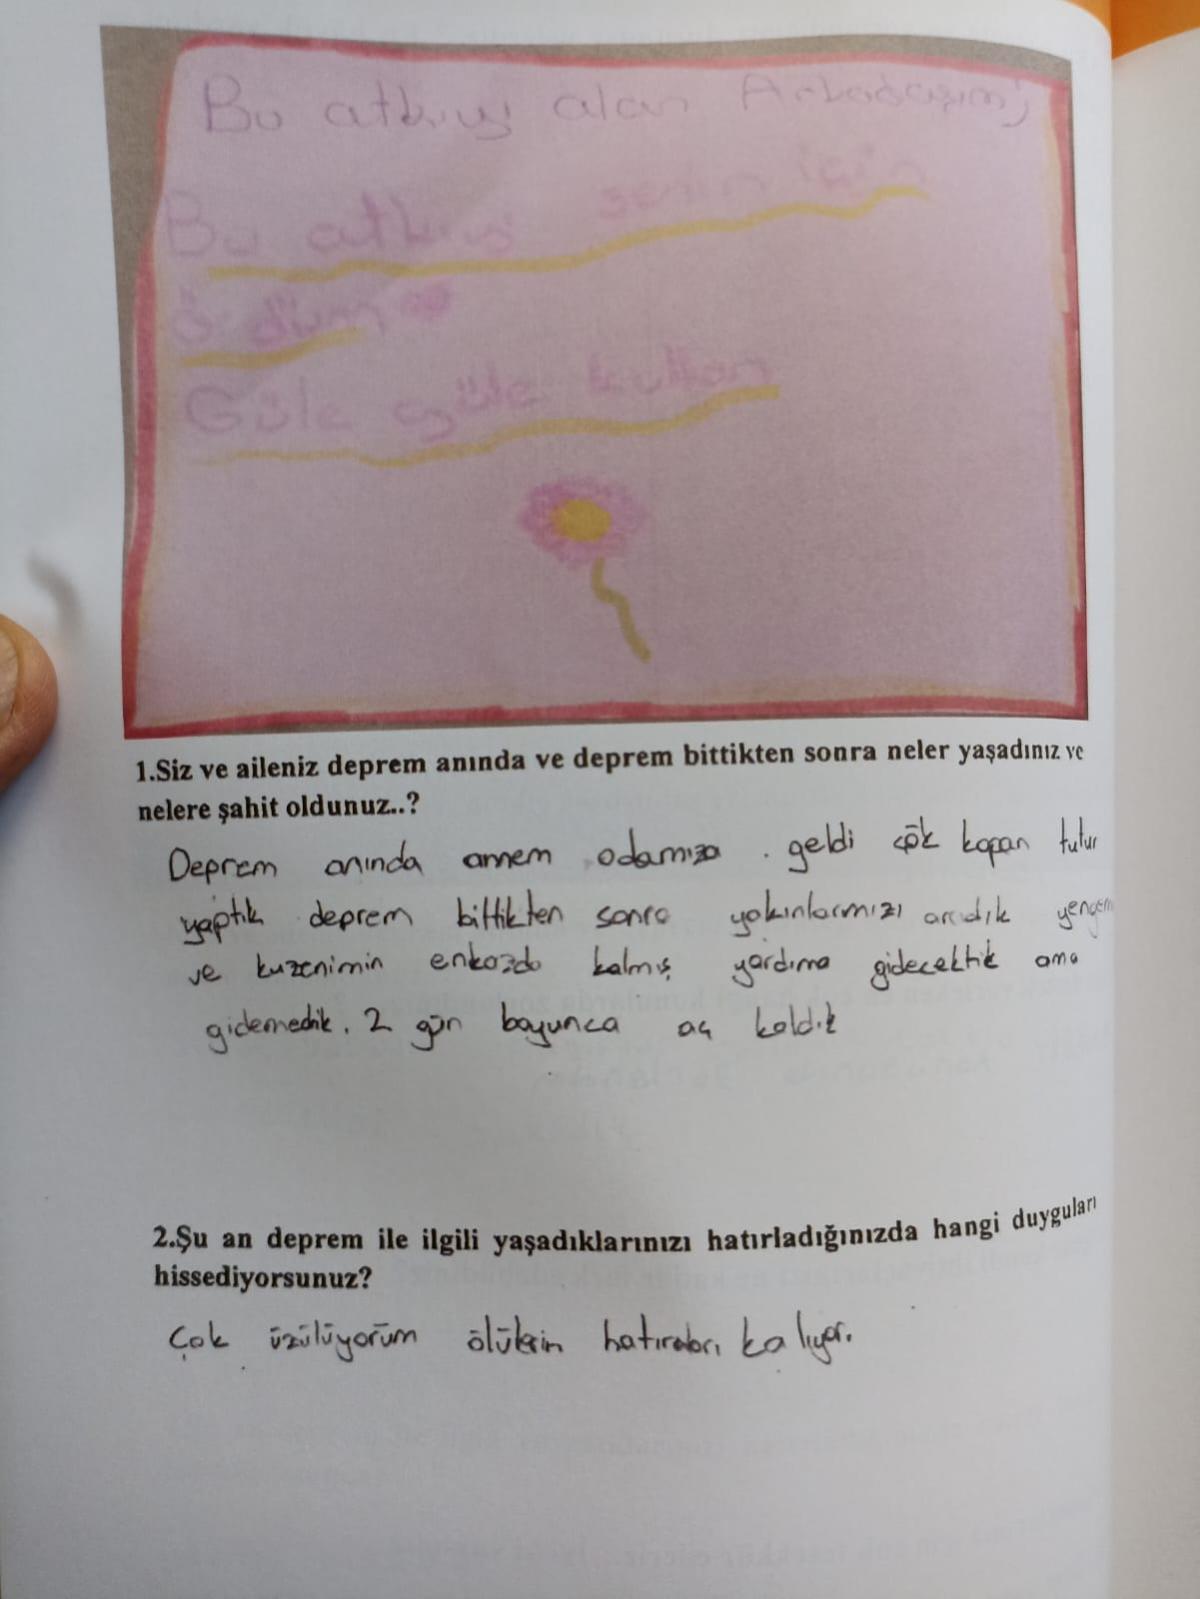 Bu atkıyı alan Arkadaşım;
Bu atkıyı senin için
ö düm
Güle güle kullan
1.Siz ve aileniz deprem anında ve deprem bittikten sonra neler yaşadınız ve
nelere şahit oldunuz..?
Deprem anında annem odamıza . geldi çök kapan tutun
yaptık deprem bittikten sonra yakınlarımızı aradık yengem
ve kuzenimin enkazda kalmış yardıma gidecektik ama
gidemedik. 2 gün boyunca aç kaldık
2.Şu an deprem ile ilgili yaşadıklarınızı hatırladığınızda hangi duyguları
hissediyorsunuz?
Çok üzülüyorum ölülerin hatıraları kalıyor.